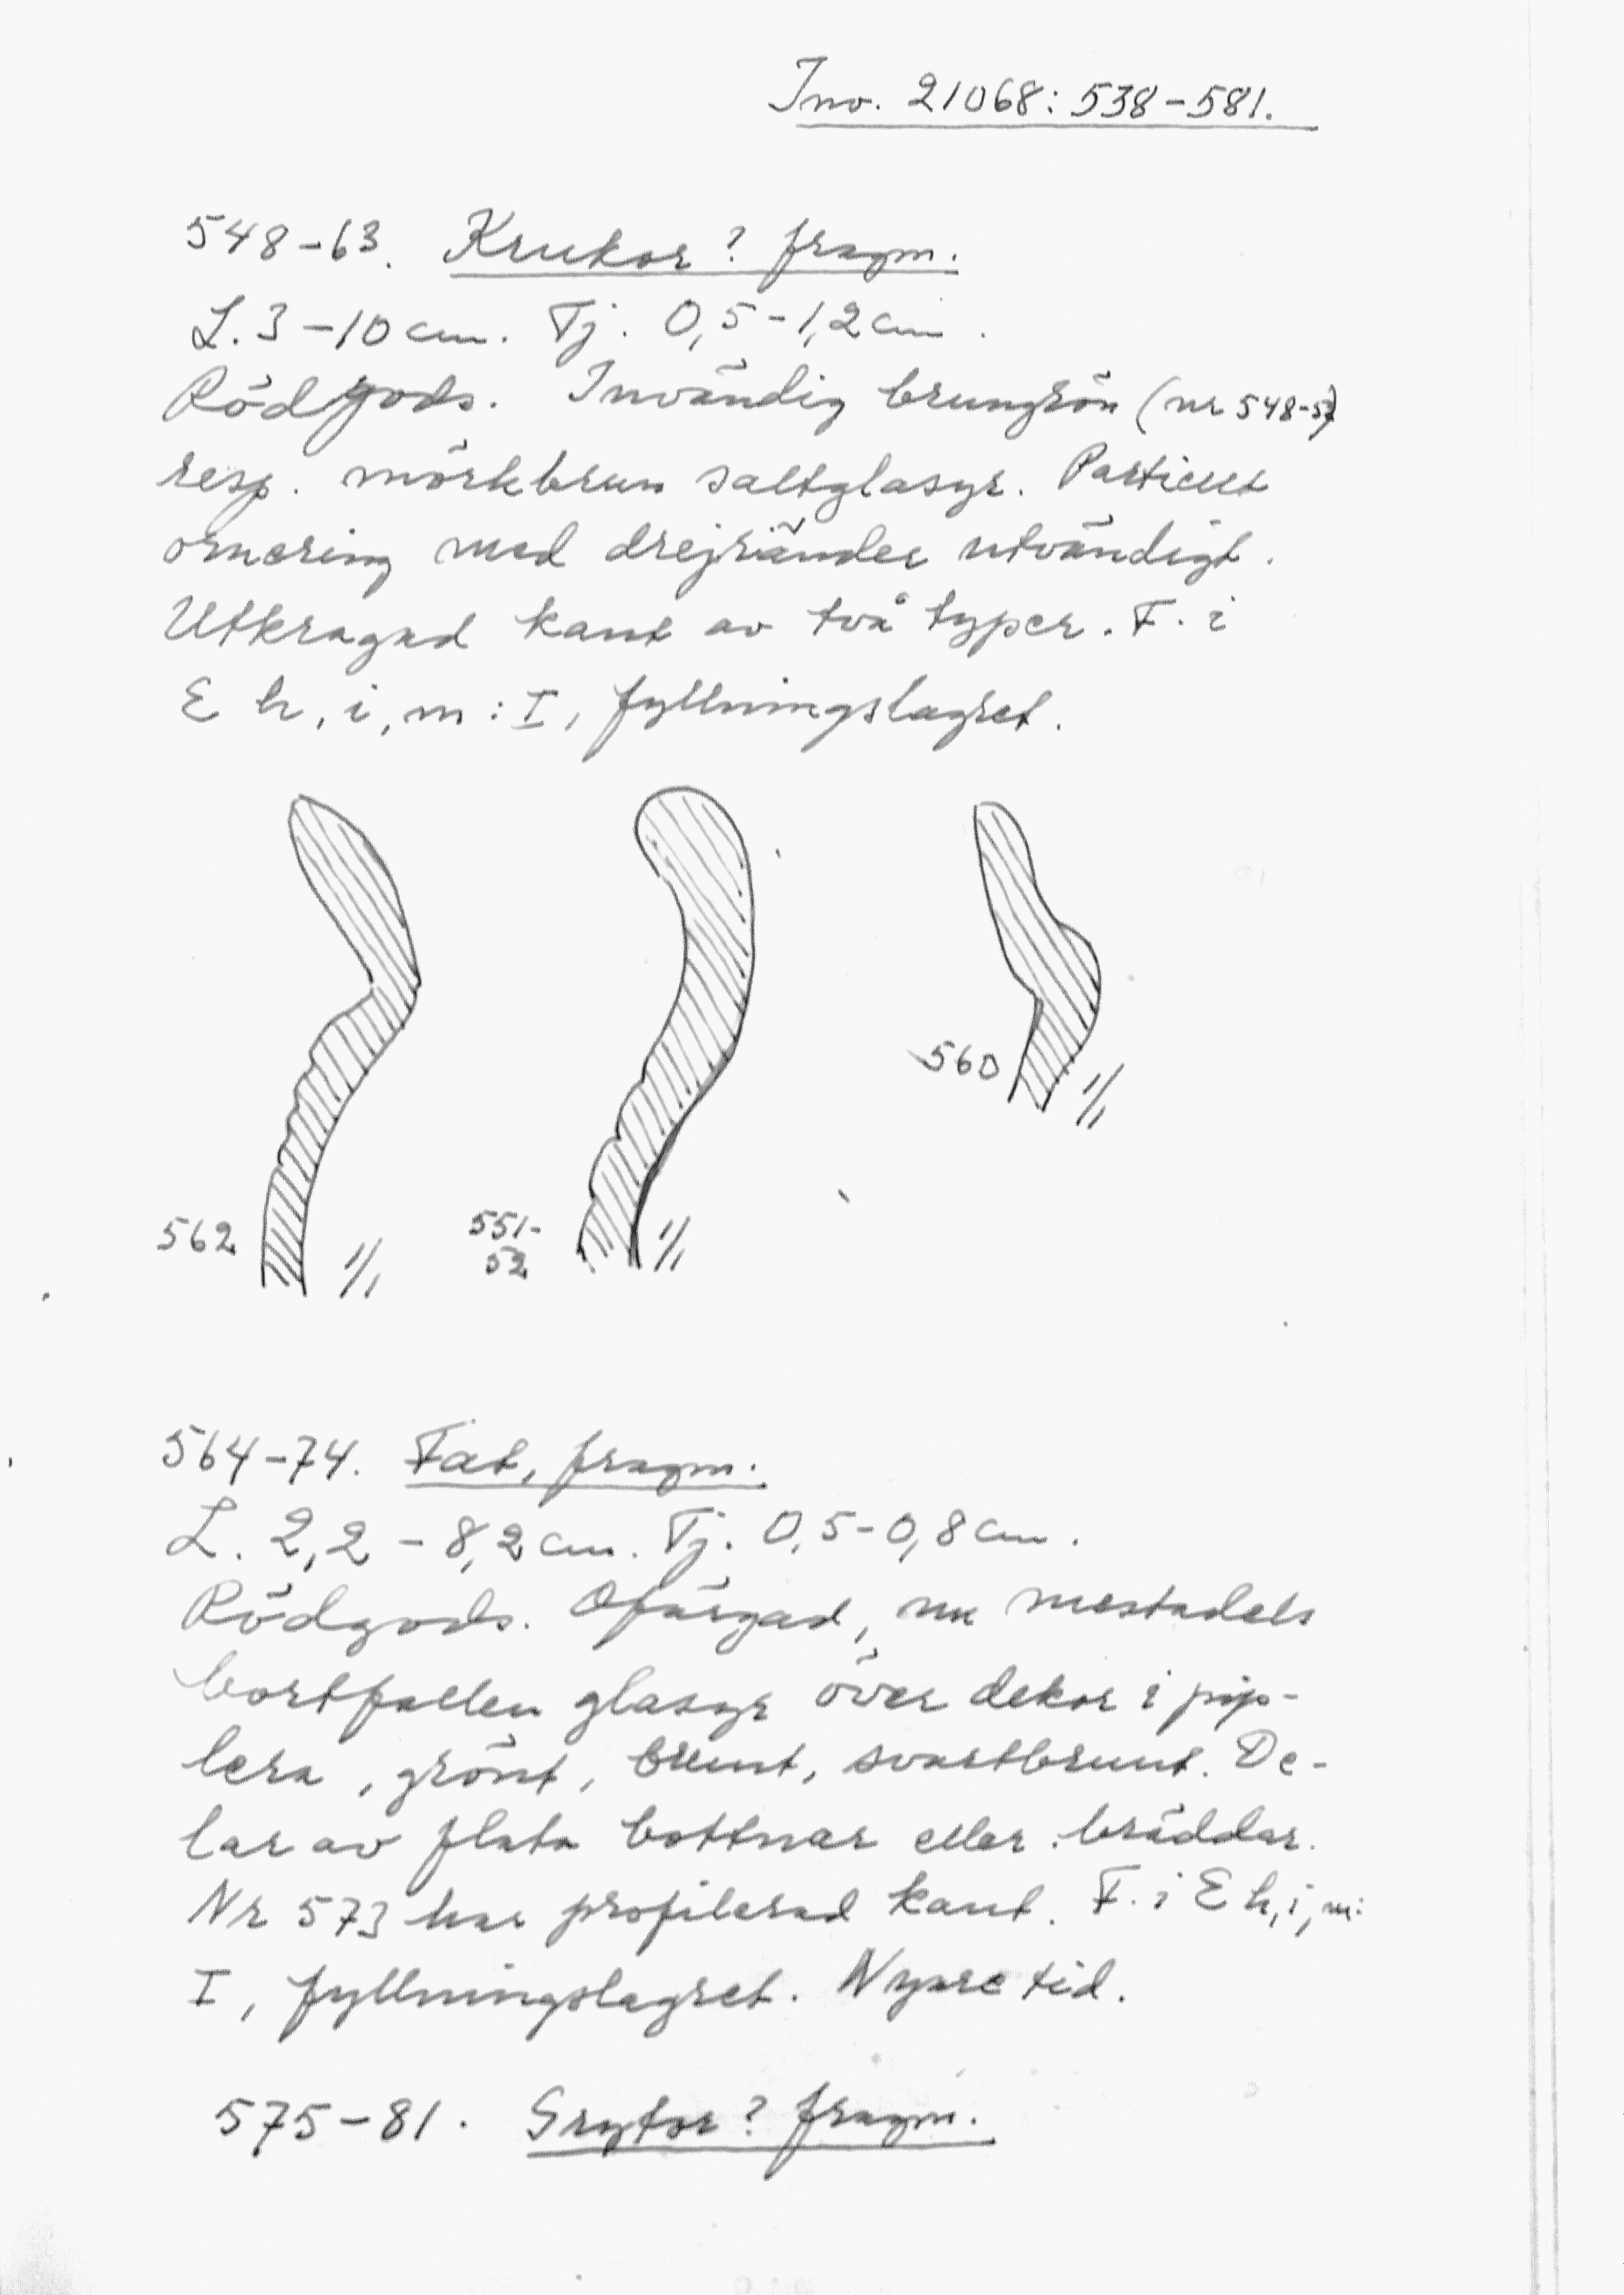 Inv. 21068: 538-581.
548-63. Krukor? fragm.
L. 3-10 cm. Tj. 0,5-1,2 cm.
Rödgods. Invändig brungrön (nr 548-57)
resp. mörkbrun saltglasyr. Partiell
ornering med drejränder utvändigt.
Utkragad kant av två typer. F. i
E h, i, m: I, fyllningslagret.
560
1/1
562
1/1
551-
52
1/1
564-74. Fat, fragm.
L. 2,2-8,2 cm. Tj. 0,5-0,8 cm.
Rödgods. Ofärgad, nu mestadels
bortfallen glasyr över dekor i pip-
lera, grönt, brunt, svartbrunt. De-
lar av plata bottnar eller bräddar.
Nr 573 har profilerad kant. F. i E h, i, m:
I, fyllningslagret. Nyare tid.
575-81. Grytor? fragm.